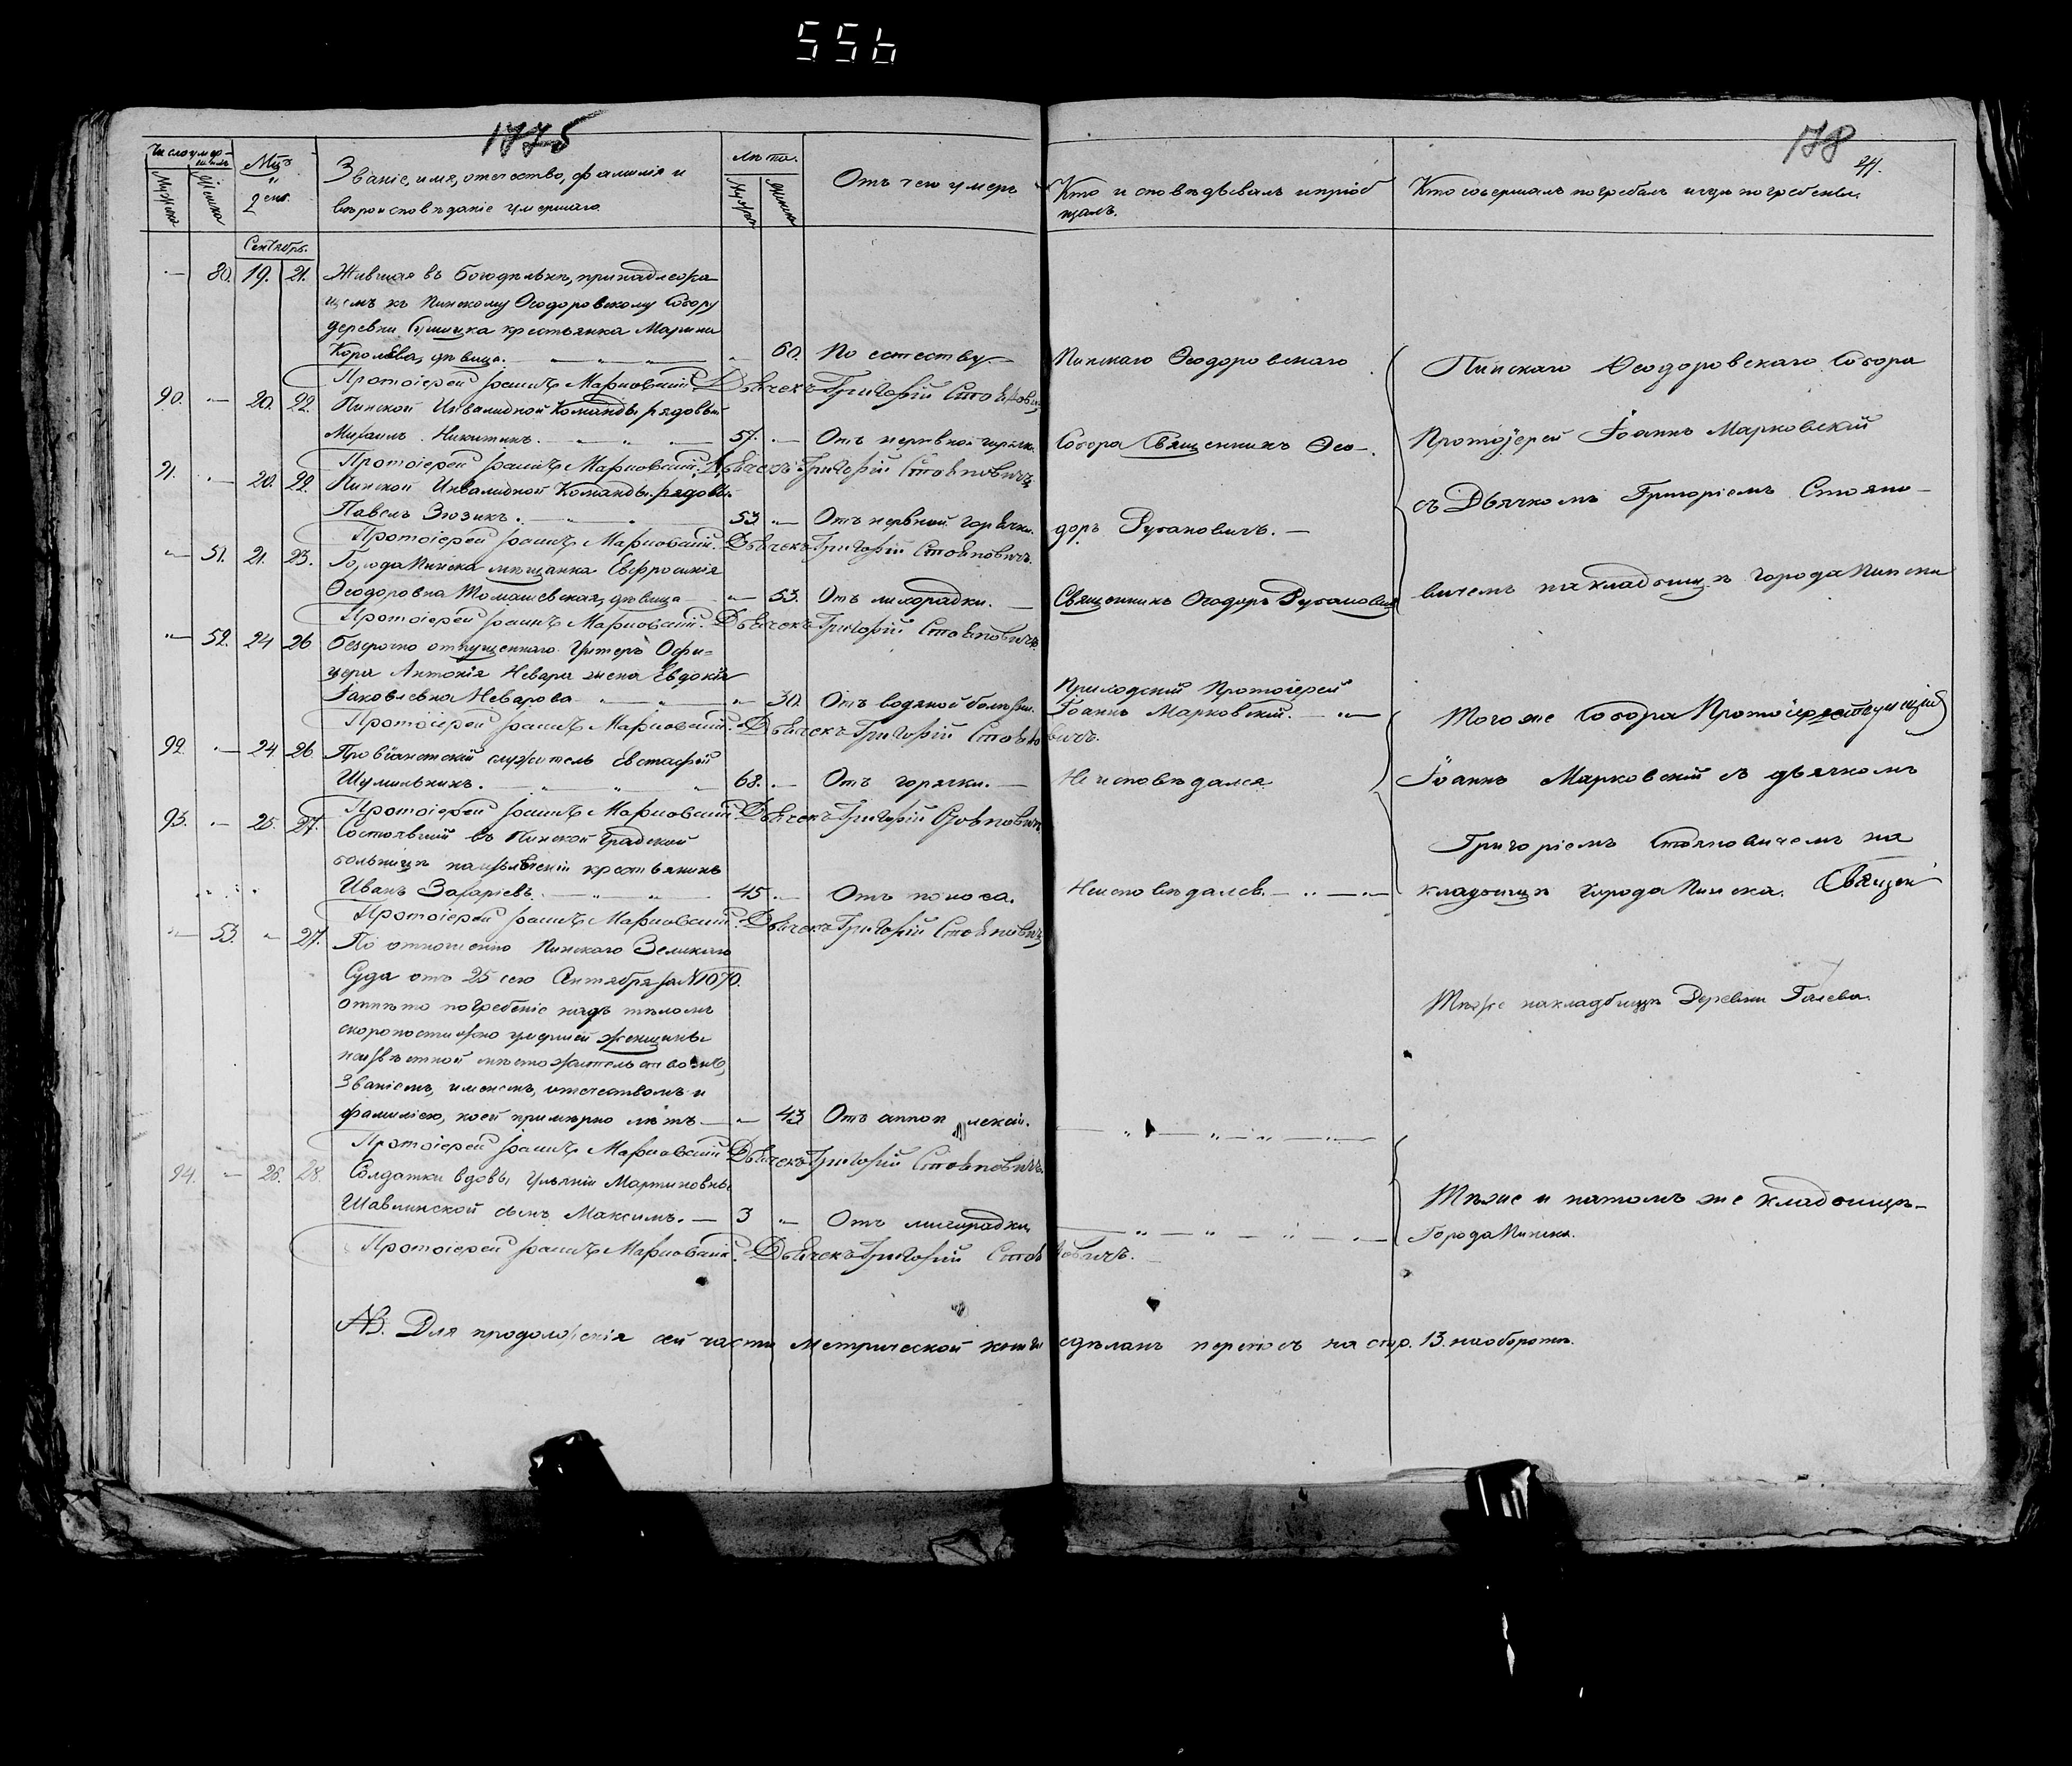 556
1775
178
24.
Число умер-
шихъ
Мужеска
Женска
Мцъ
и
День
Званіе, имя, отечество, фамилія и
вѣроисповѣданіе умершаго
лѣта.
Мужеска
Женска
Отъ чего умеръ
Кто исповѣдывалъ и пріоб
щалъ.
Кто совершалъ погребалъ и гдѣ погребены.
Сентябрь.
— 80. 19. 21. Жившая въ богодѣльнѣ, принадлежа
щемъ къ Пинскому Ѳеодоровскому Собору
деревни крестьянка Марина
Королева, дѣвица. — „ — „ 60. По естеству. Пинскаго Ѳеодоровскаго Пинскаго Ѳеодоровскаго Собора
Протоіерей Іоаннъ Марковскій. Дьячекъ Григорій Стояновичъ
90. — 20. 22. Пинской Инвалидной Команды рядовый
Михаилъ Никитинъ. — „ — 57. „ Отъ нервной горячк. Собора Священникъ Ѳео-. Протоіерей Іоаннъ Марковскій
Протоіерей Іоаннъ Марковскій. Дьячекъ Григорій Стояновичъ
91. — 20. 22. Пинской Инвалидной Команды рядовый
Павелъ Зюзикъ. — „ — 53 „ Отъ нервной горячки. доръ Русановичъ. — съ Дьячкомъ Григоріемъ Стояно-
Протоіерей Іоаннъ Марковскій. Дьячекъ Григорій Стояновичъ.
„ 51. 21. 23. Города Пинска мѣщанка Евфросинія
Ѳеодоровна Томашевская, дѣвица — „ 53. Отъ лихорадки. — Священникъ Ѳеодоръ Русановичъ вичемъ на кладбищѣ города Пинска
Протоіерей Іоаннъ Марковскій. Дьячекъ Григорій Стояновичъ.
„ 52. 24 26 Безсрочно отпущеннаго Унтеръ Офи=
цера Антонія Невара жена Евдокія
Іаковлевна Неварова — „ — „ 30. Отъ водяной болѣзни. Приходскій Протоіерей
Іоаннъ Марковскій. — „ — Того же Собора Протоіерей
Протоіерей Іоаннъ Марковскій. Дьячекъ Григорій Стояновичъ.
92. „ — 24. 26. Провіантскій служитель Евстафій
Шумильникъ. — „ — „ 68. — Отъ горячки. — Неисповѣдался Іоаннъ Марковскій съ дьячкомъ
Протоіерей Іоаннъ Марковскій. Дьячекъ Григорій Стояновичъ.
93. — 25. 27. Состоявшій въ Пинской Градской
больницѣ на излѣченіи крестьянинъ Григоріемъ Стояновичемъ на
Иванъ Захаріевъ. — „ — 45 „ Отъ поноса. Неисповѣдался. — „ — кладбищѣ города Пинска.
Протоіерей Іоаннъ Марковскій. Дьячекъ Григорій Стояновичъ
„ 53. „ 27. По отношенію Пинскаго Земскаго
Суда отъ 25 сего Сентября за № 1070.
отпѣто погребеніе надъ тѣломъ Тѣже на кладбищѣ Деревни Галева.
скоропостижно умершей женщины
неизвѣстной мѣстожительствомъ,
званіемъ, именемъ, отечествомъ и
фамиліею, коей примѣрно лѣтъ — „ 43 Отъ апоплексіи. — „ — „ —
Протоіерей Іоаннъ Марковскій. Дьячекъ Григорій Стояновичъ.
94. — 26. 28. Солдатки вдовы Ульяніи Мартиновны
Шавлинской сынъ Максимъ. — 3 „ Отъ лихорадки — „ — „ — Тѣже и натомъ же кладбищѣ
Города Пинска.
Протоіерей Іоаннъ Марковскій. Дьячекъ Григорій Стояновичъ.
NB. Для продолженія сей части Метрической книги сдѣланъ переносъ на стр. 13. наоборотъ.